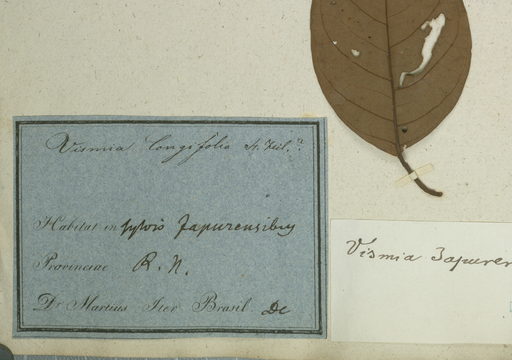 Vismia longifolia St. Hil.?
Habitat in sylvis Japurensibus
Provinciae R. N.
Dr. Martius Iter Brasil. De
Vismia Japuren